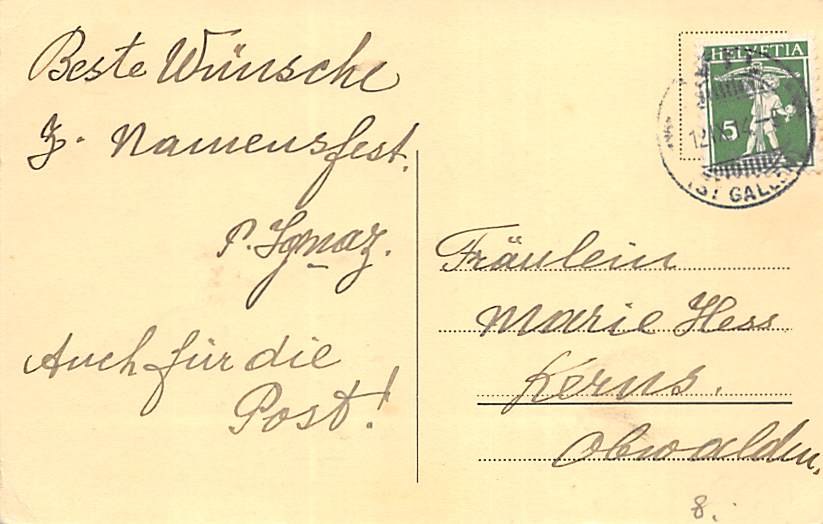 Beste Wünsche
z. Namensfest.
P. Ignaz.
Auch für die
Post!
HELVETIA
5
ST GALLEN
Fräulein
Marie Hess.
Kerns.
Obwalden.
8.